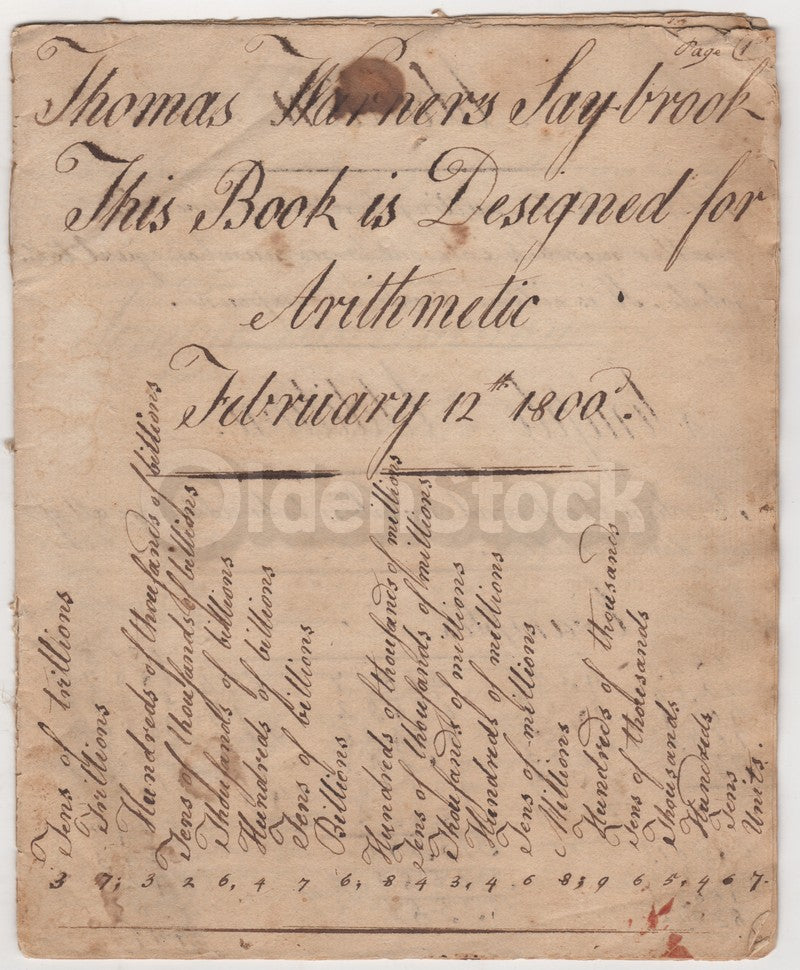 Page 1
Thomas Warners Saybrook
This Book is Designed for
Arithmetic
February 12th 1800.
Tens of trillions
Trillions
Hundreds of thouſands of billions
Tens of thouſands of billions
Thouſands of billions
Hundreds of billions
Tens of billions
Billions
Hundreds of thouſands of millions
Tens of thouſands of millions
Thouſands of millions
Hundreds of millions
Tens of millions
Millions
Hundreds of thousands
Tens of thousands
Thousands
Hundreds
Tens
Units.
3 7; 3 2 6, 4 7 6; 8 4 3, 4 6 8; 9 6 5, 4 6 7.
OldenStock